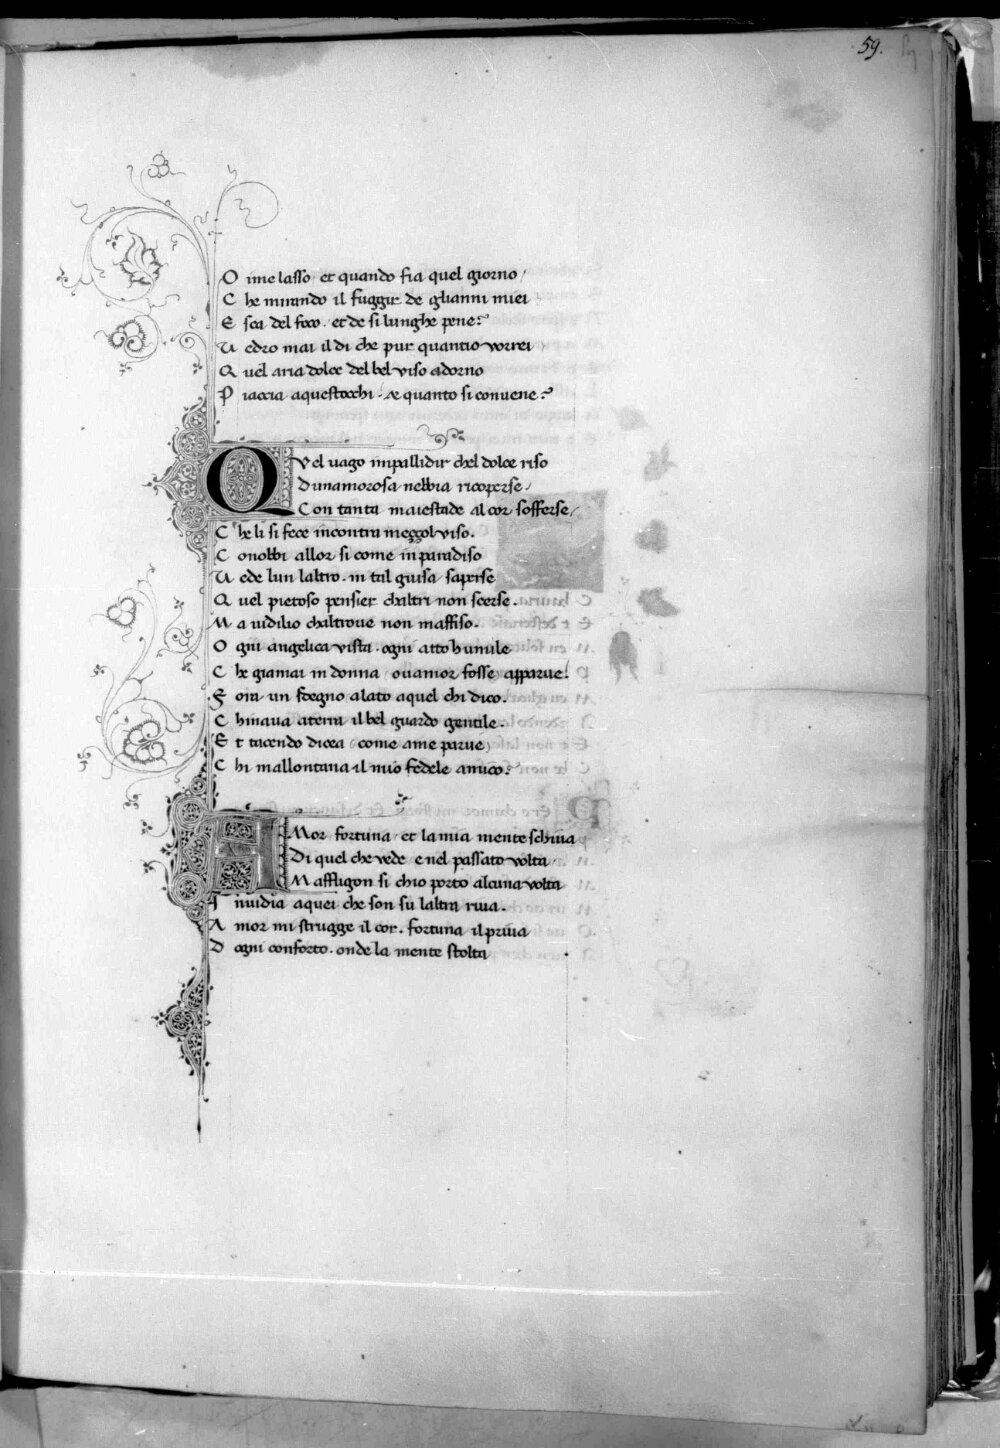 59.
O ime lasso et quando fia quel giorno /
C he mirando il fuggir de glianni miei
E sca del foco . et de si lunghe pene?
U edro mai il di che pur quantio vorrei
Q uel aria dolce del bel viso adorno
P iaccia aquestocchi . & quanto si convene?
Q Vel uago impallidir chel dolce riso
Dunamorosa nebbia ricoperse /
Con tanta maiestade al cor sofferse /
C he li si fece incontra mezzol viso.
C onobbi allor si come in paradiso
U ede lun laltro . in tal guisa saperse
Q uel pietoso pensier chaltri non scerse .
M a vidilio chaltroue non maffiso .
O gni angelica vista . ogni atto humile
C he giamai in donna ouamor fosse apparue!
F ora un sdegno alato aquel chi dico .
C hinaua aterra il bel guardo gentile .
E t tacendo dicea come ame parue
C hi mallontana il mio fedele amico?
A Mor fortuna et la mia mente schiua
Di quel che vede e nel passato volta
Maffligon si chio porto alcuna volta
I nuidia aquei che son su laltra riua .
A mor mi strugge il cor . fortuna il priua
D ogni conforto . onde la mente stolta